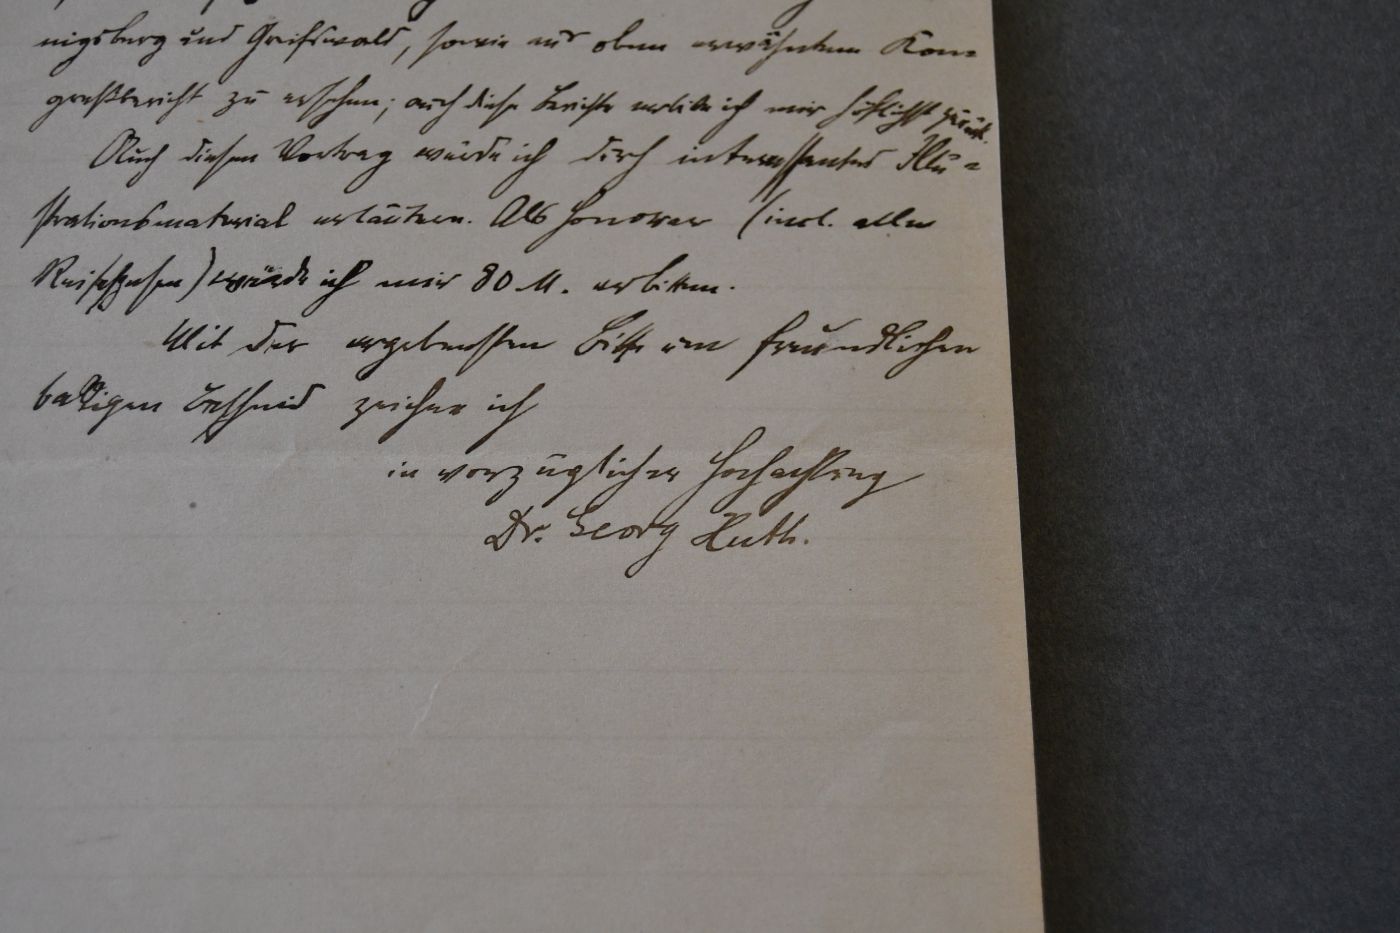 nigsberg und Greifswald, sowie aus oben erwähntem Kon-
greßbericht zu ersehen; auch diese Berichte erbitte ich mir höflichst zurück.
Auch diesen Vortrag würde ich durch interessantes Illu-
strationsmaterial erläutern. Als Honorar (incl. aller
Reisespesen) würde ich mir 80 M. erbitten.
Mit der ergebensten Bitte um freundlichen
baldigen Bescheid zeichne ich
in vorzüglicher Hochachtung
Dr. Georg Huth.